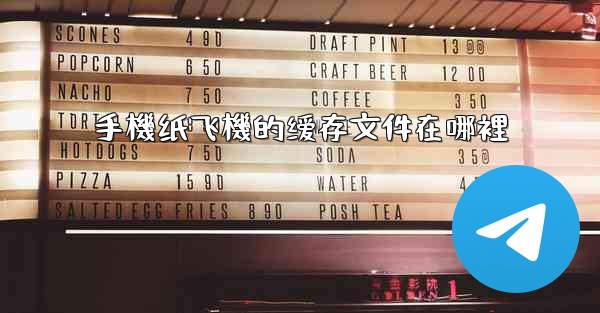 SCONES 4 90 DRAFT PINT 13 00
POPCORN 6 50 CRAFT BEER 12 00
NACHO 7 50 COFFEE 3 50
手機纸飞機的缓存文件在哪裡
HOTDOGS 7 50 SODA 3 50
PIZZA 15 90 WATER
SALTED EGG FRIES 8 90 POSH TEA
GOLDEN 1